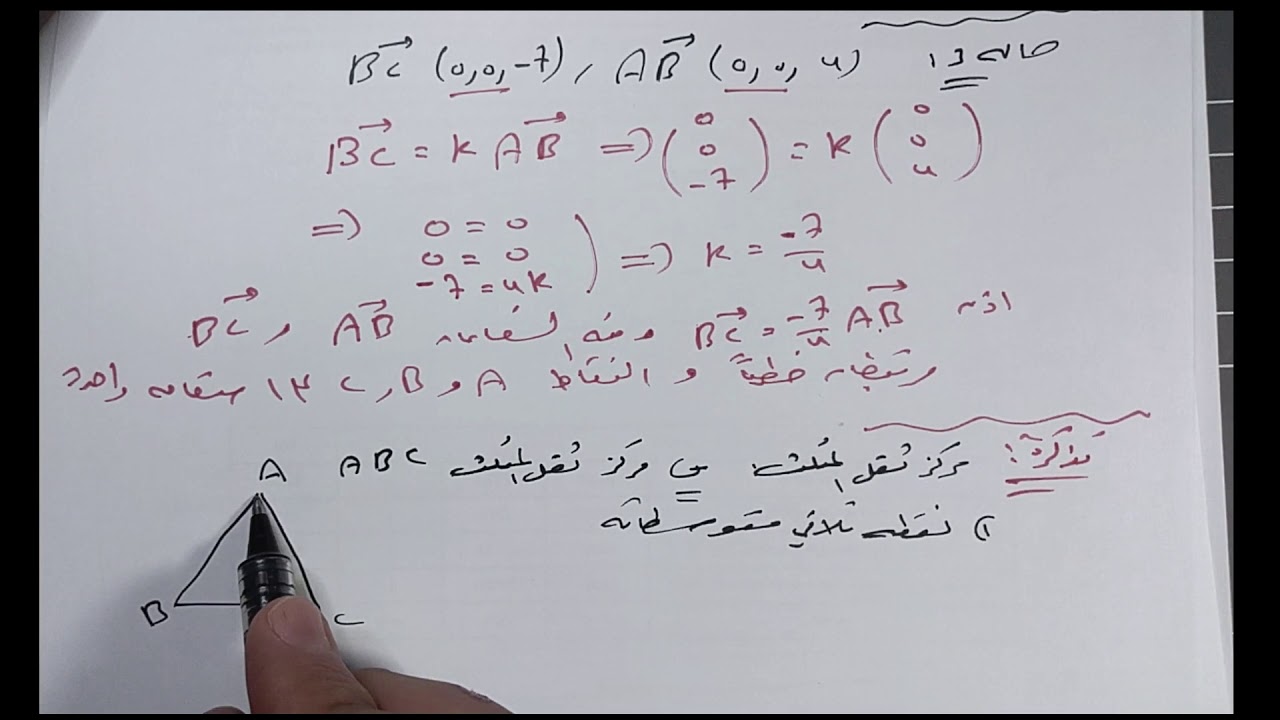 حالة 3) \overrightarrow{AB} (0, 0, 4) , \overrightarrow{BC} (0, 0, -7)
\overrightarrow{BC} = k \overrightarrow{AB} ⇒ (0 0 -7) = k (0 0 4)
⇒ 0 = 0
0 = 0 ⇒ k = -7/4
-7 = 4k
اذن \overrightarrow{BC} = -7/4 \overrightarrow{AB} ومنه الشعاعان \overrightarrow{AB} و \overrightarrow{BC}
مرتبطان خطياً و النقاط A و B و C استقامة واحدة
تذكرة: مركز ثقل المثلث: مركز ثقل المثلث ABC
نقطة تلاقي متوسطاته
A
B
C